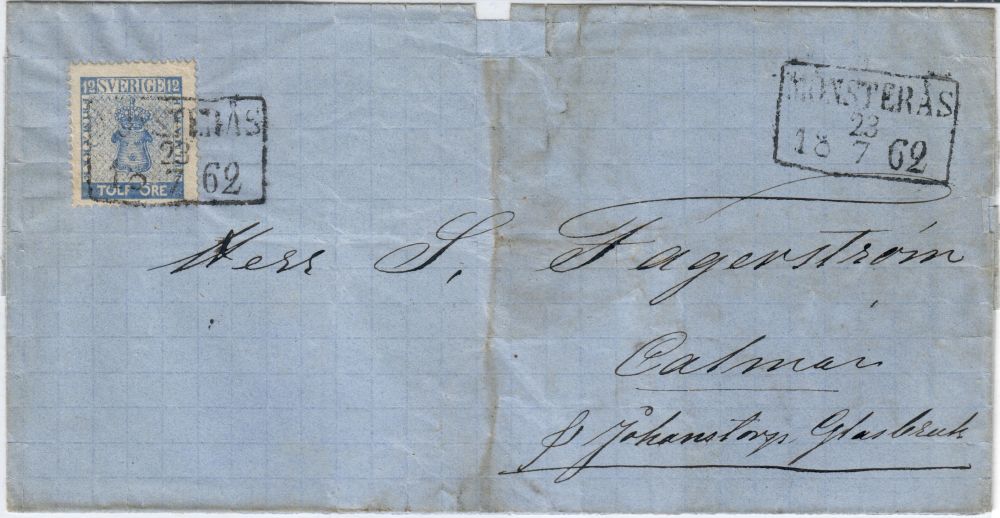 12 SVERIGE 12
TOLF ÖRE
MÖNSTERÅS
23
18 7 62
MÖNSTERÅS
23
18 7 62
Herr S. Fagerström
Calmar
Johanstorps Glasbruk